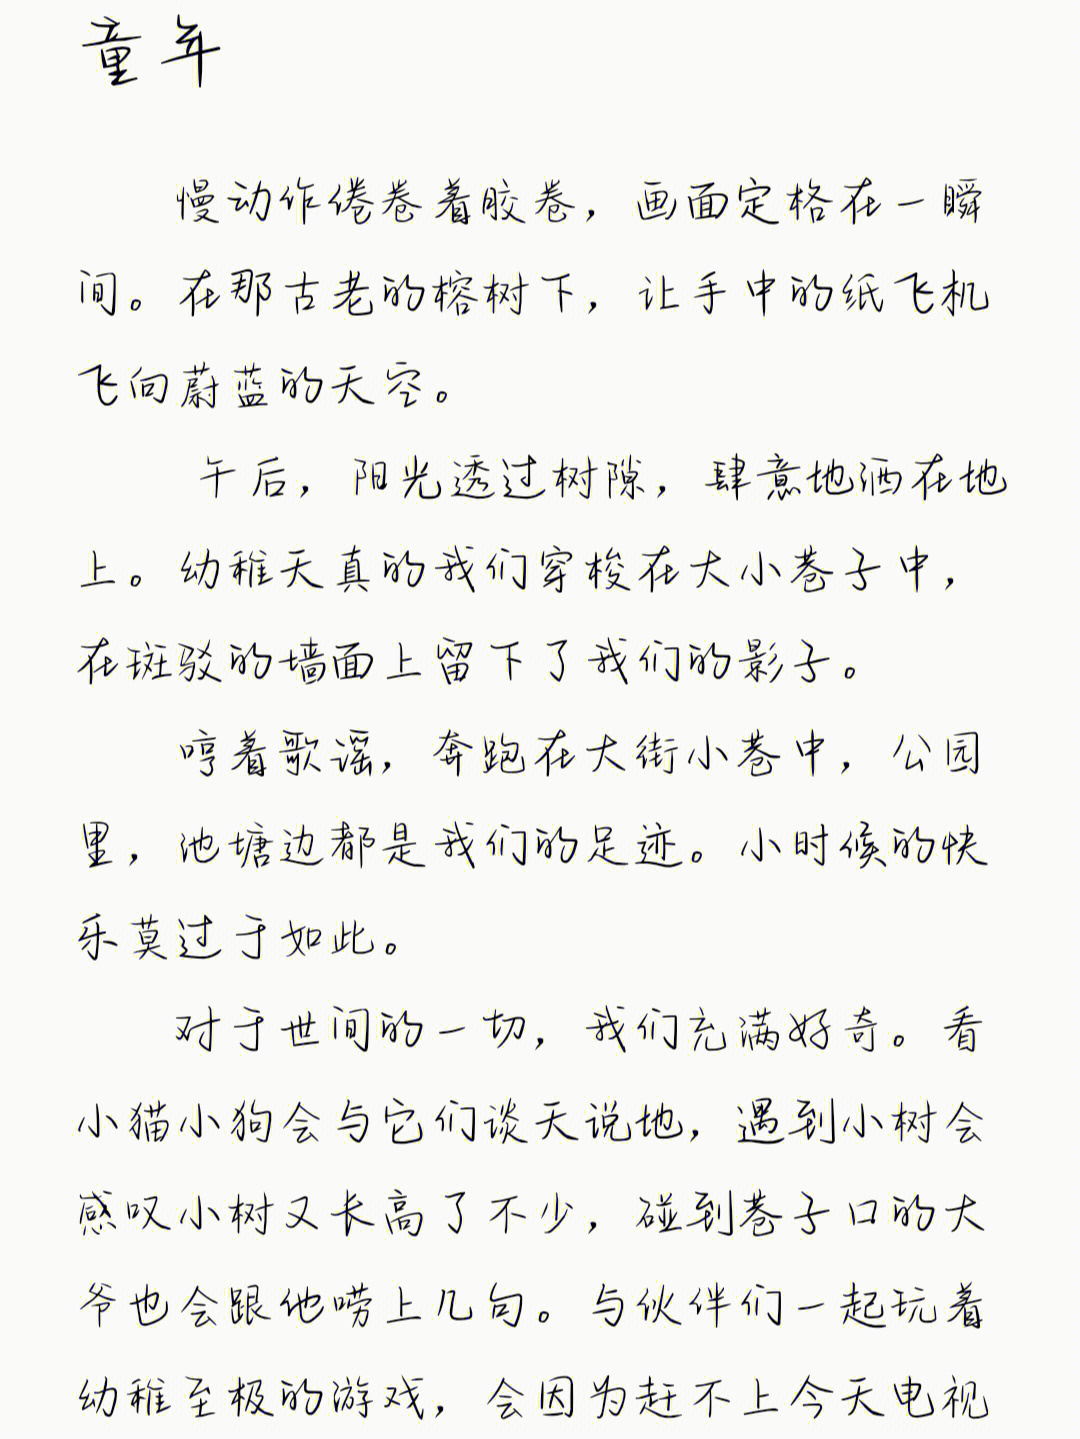 童年
慢动作倦卷着胶卷，画面定格在一瞬
间。在那古老的榕树下，让手中的纸飞机
飞向蔚蓝的天空。
午后，阳光透过树隙，肆意地洒在地
上。幼稚天真的我们穿梭在大小巷子中，
在斑驳的墙面上留下了我们的影子。
哼着歌谣，奔跑在大街小巷中，公园
里，池塘边都是我们的足迹。小时候的快
乐莫过于如此。
对于世间的一切，我们充满好奇。看
小猫小狗会与它们谈天说地，遇到小树会
感叹小树又长高了不少，碰到巷子口的大
爷也会跟他唠上几句。与伙伴们一起玩着
幼稚至极的游戏，会因为赶不上今天电视